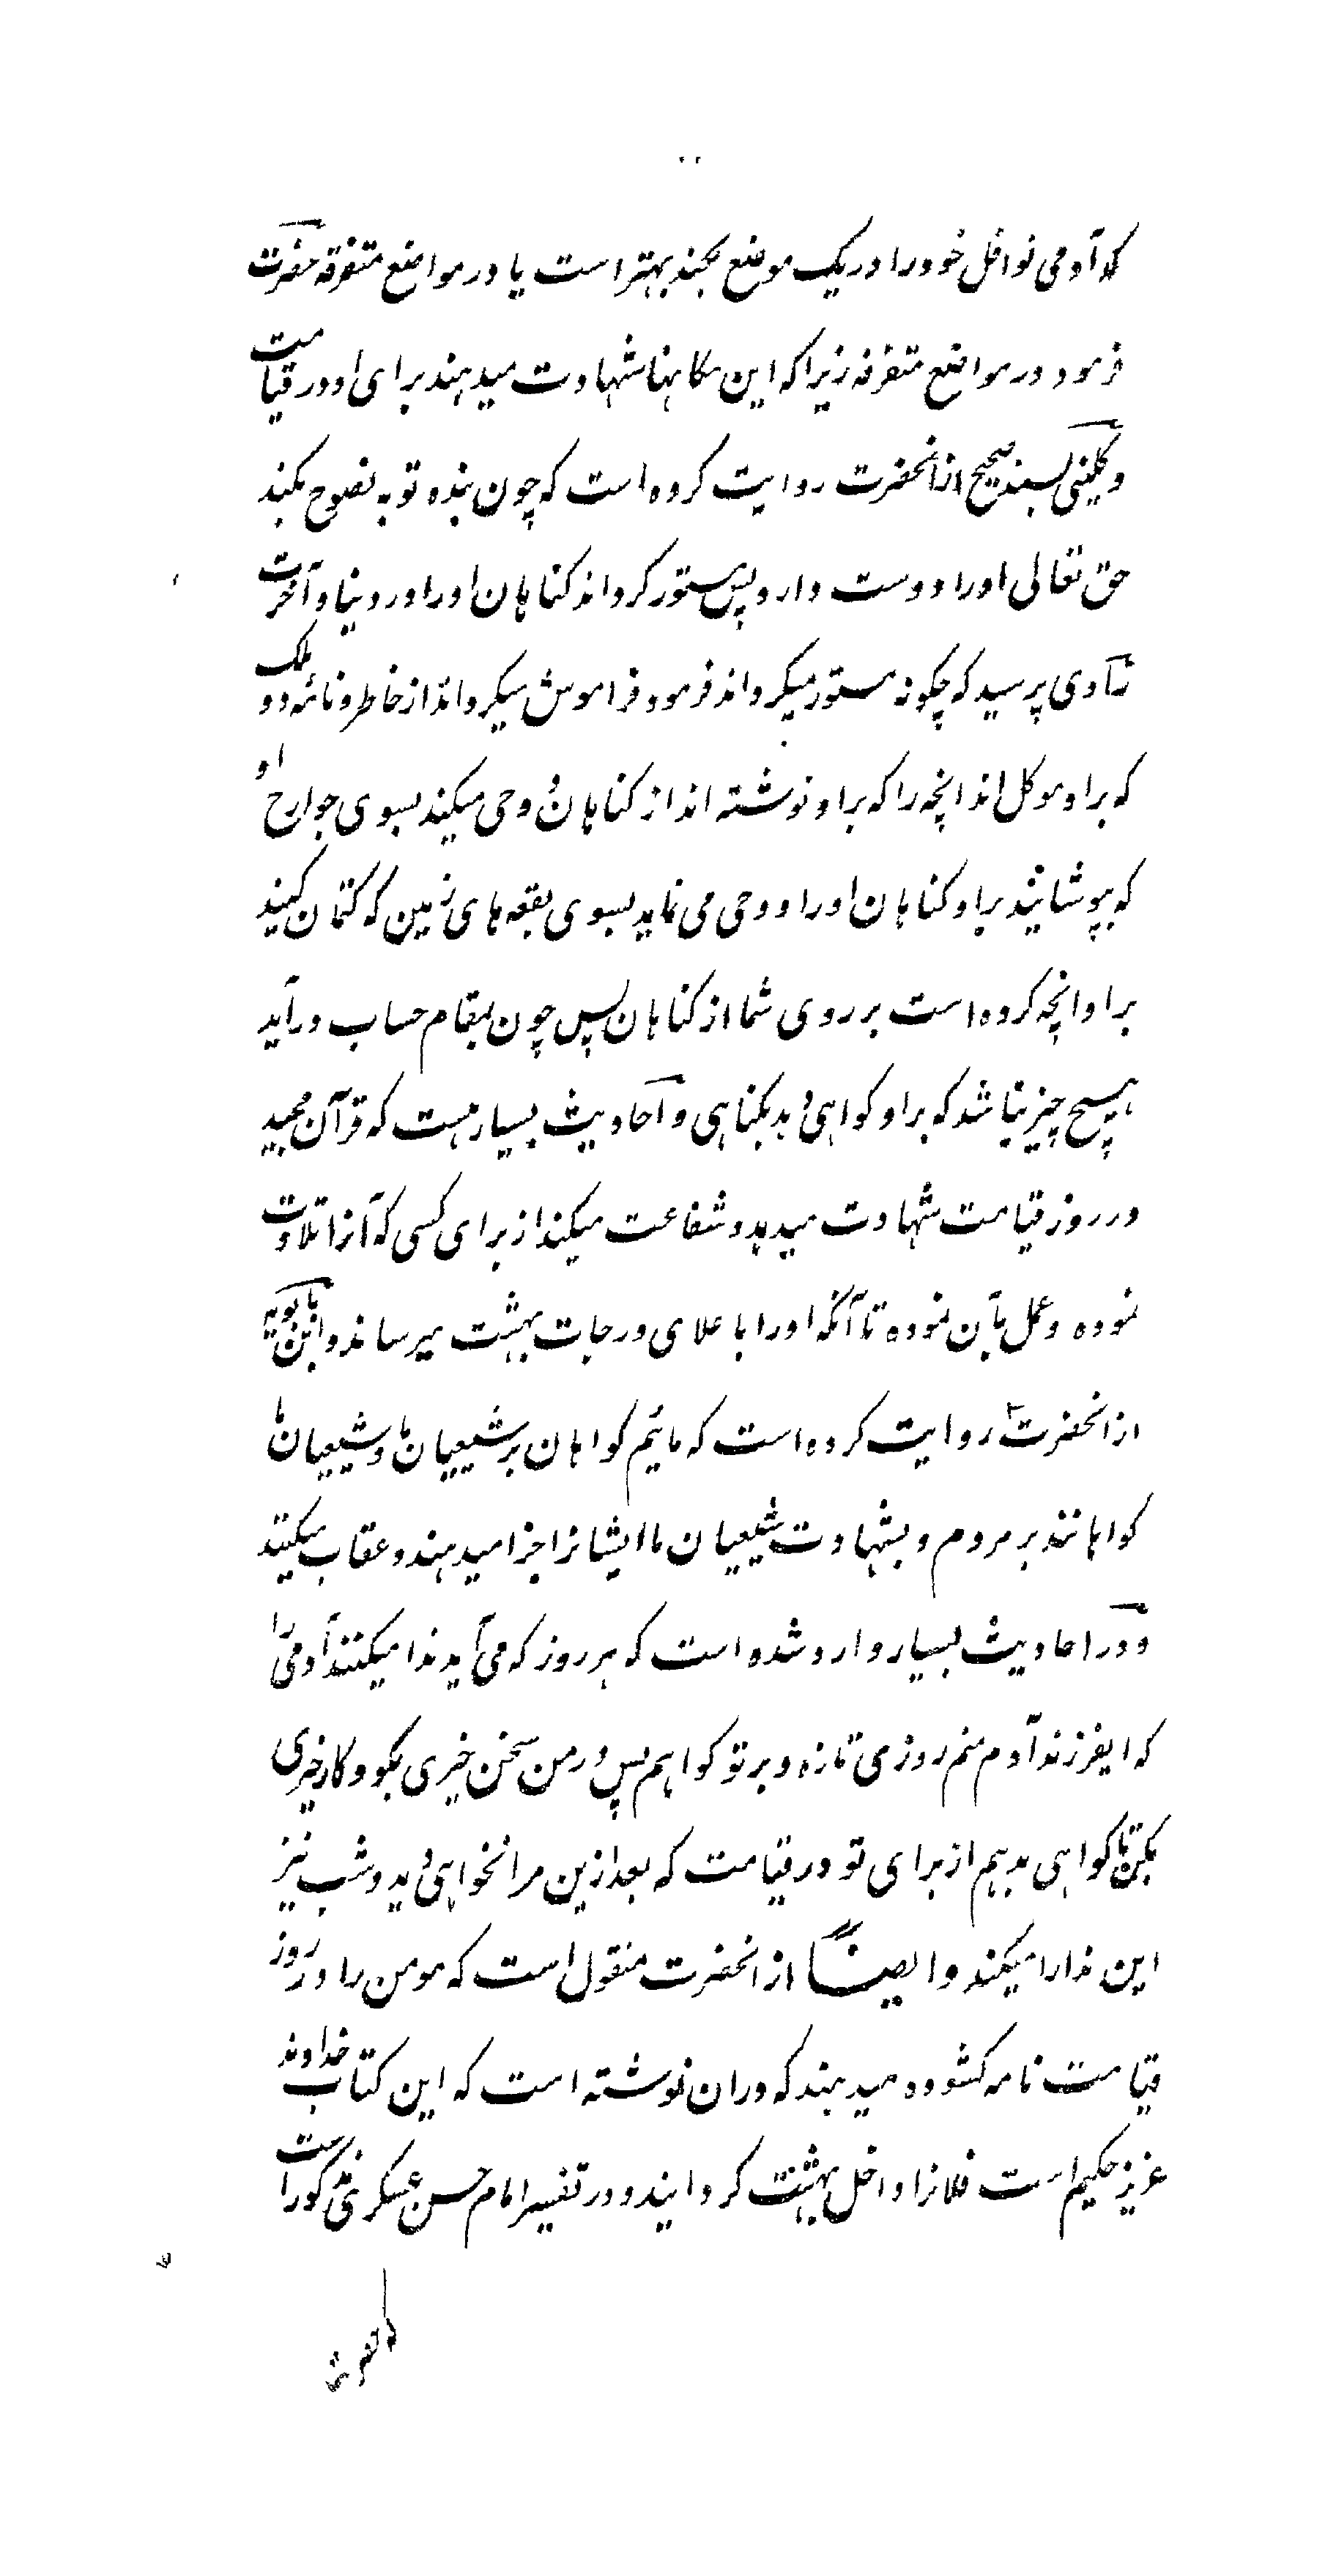 که آدمی نوافل خود را در یک موضع بکند بهتر است یا در مواضع متفرقه حضرت
فرمود در مواضع متفرقه زیرا که این مکانها شهادت میدهند برای او در قیامت
و کلینی بسند صحیح از انحضرت روایت کرده است که چون بنده توبه نصوح بکند
حق تعالی او را دوست دارد پس مستور کرداند کناهان او را در دنیا و آخرت
راوی پرسید که چکونه مستور میکرداند فرمود فراموش میکرداند از خاطر و نامه دو ملک
که بر او موکل اند انچه را که بر او نوشته اند از کناهان و وحی میکند بسوی جوارح او
که بپوشانید بر او کناهان او را و وحی می نماید بسوی بقعه های زمین که کتمان کنید
بر او انچه کرده است بر روی شما از کناهان پس چون بمقام حساب درآید
هیچ چیز نباشد که بر او کواهی دهد بکناهی و احادیث بسیار هست که قرآن مجید
در روز قیامت شهادت میدهد و شفاعت میکند از برای کسی که آنرا تلاوت
نموده و عمل بآن نموده تا آنکه او را باعلای درجات بهشت میرساند و ابن بابویه
از انحضرت روایت کرده است که مائیم کواهان بر شیعیان ما و شیعیان ما
کواهانند بر مردم و بشهادت شیعیان ما ایشانرا جزا میدهند و عقاب میکنند
و در احادیث بسیار وارد شده است که هر روز که می آید ندا میکنند آدمی را
که ایفرزند آدم منم روزی تازه و بر تو کواهم پس در من سخن خیری بکو و کار خیری
بکن تا کواهی بدهم از برای تو در قیامت که بعد ازین مرا نخواهی دید و شب نیز
این ندا را میکند و ایضاً از انحضرت منقول است که مومن را در روز
قیامت نامه کشوده میدهند که دران نوشته است که این کتاب خداوند
عزیز حکیم است فلانرا داخل بهشت کردانید و در تفسیر امام حسن عسکری مذکور است